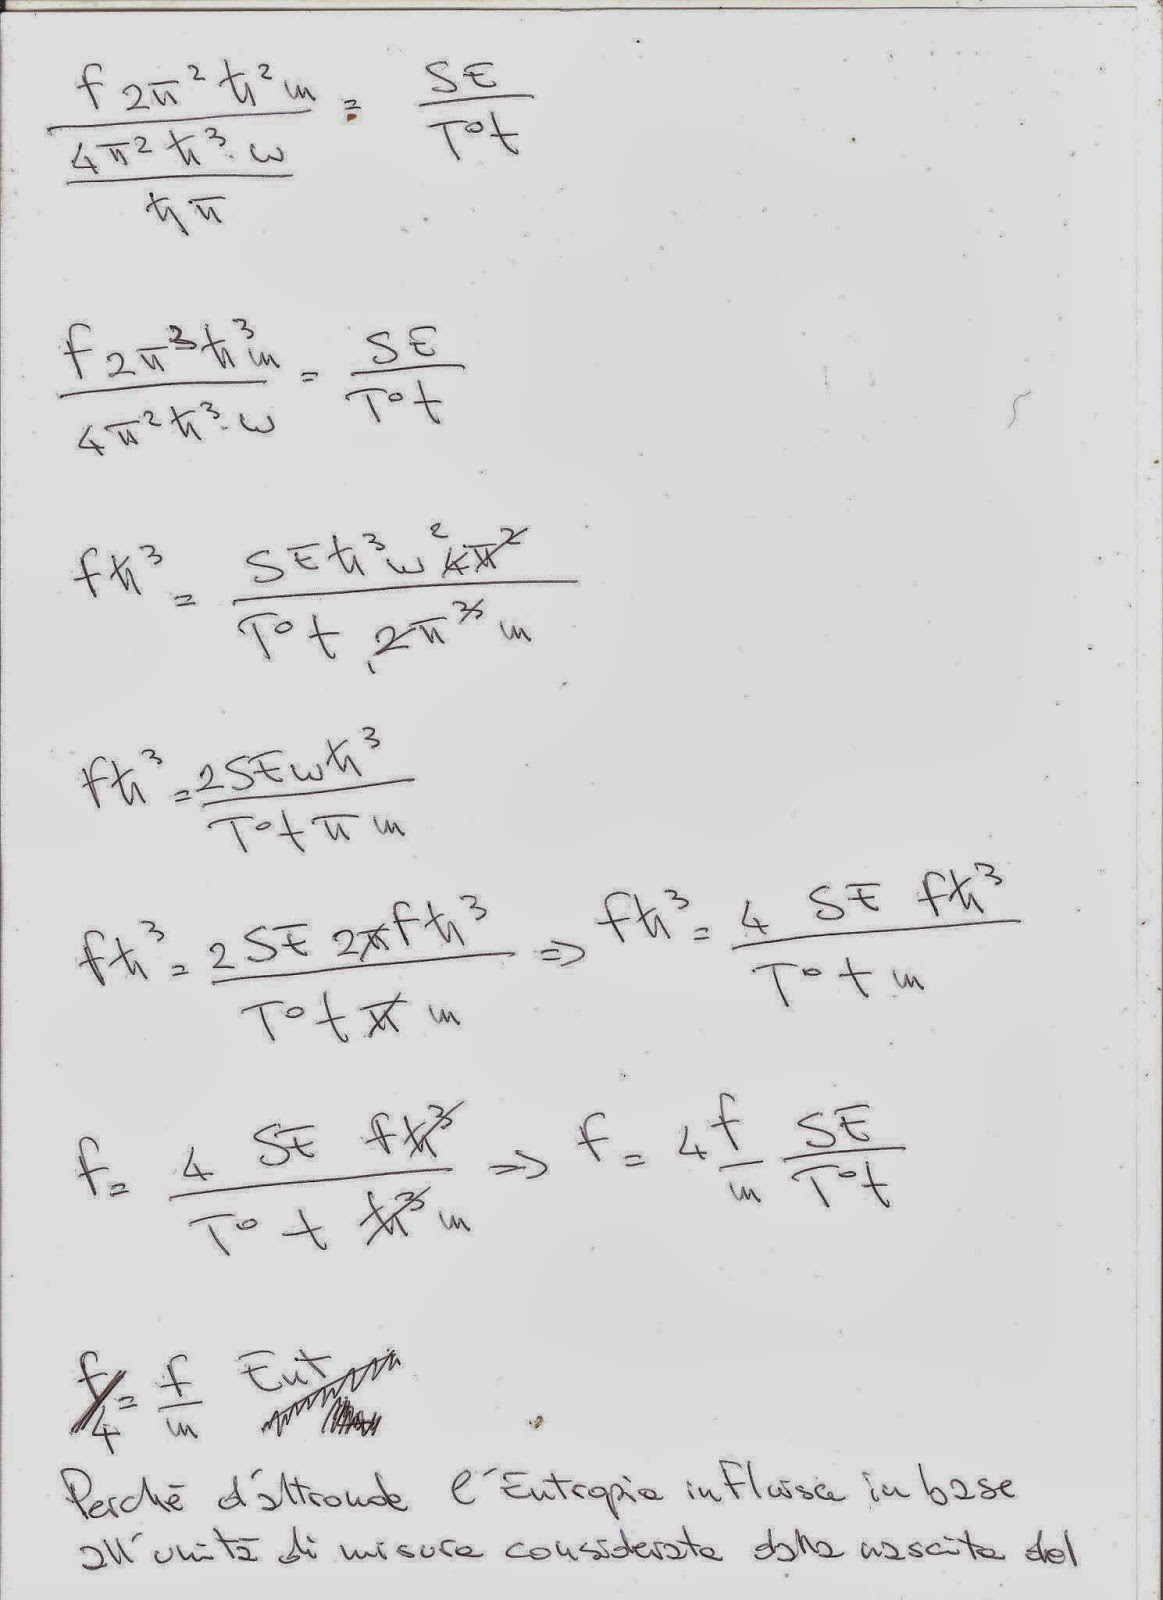 f 2π² ħ² m / (4π² ħ³ · ω / ħ π) = SE / T° t
f 2π³ ħ³ m / 4π² ħ³ · ω = SE / T° t
fħ³ = SE ħ³ ω² 4π² / T° t · 2π³ m
fħ³ = 2SEωħ³ / T° t π m
fħ³ = 2SE 2πfħ³ / T° t π m => fħ³ = 4 SE fħ³ / T° t m
f = 4 SE fħ³ / T° t ħ³ m => f = 4 f/m SE / T° t
f/4 = f/m Ent
Perchè d'altronde l'Entropia influisce in base
all'unità di misura considerata dalla nascita del